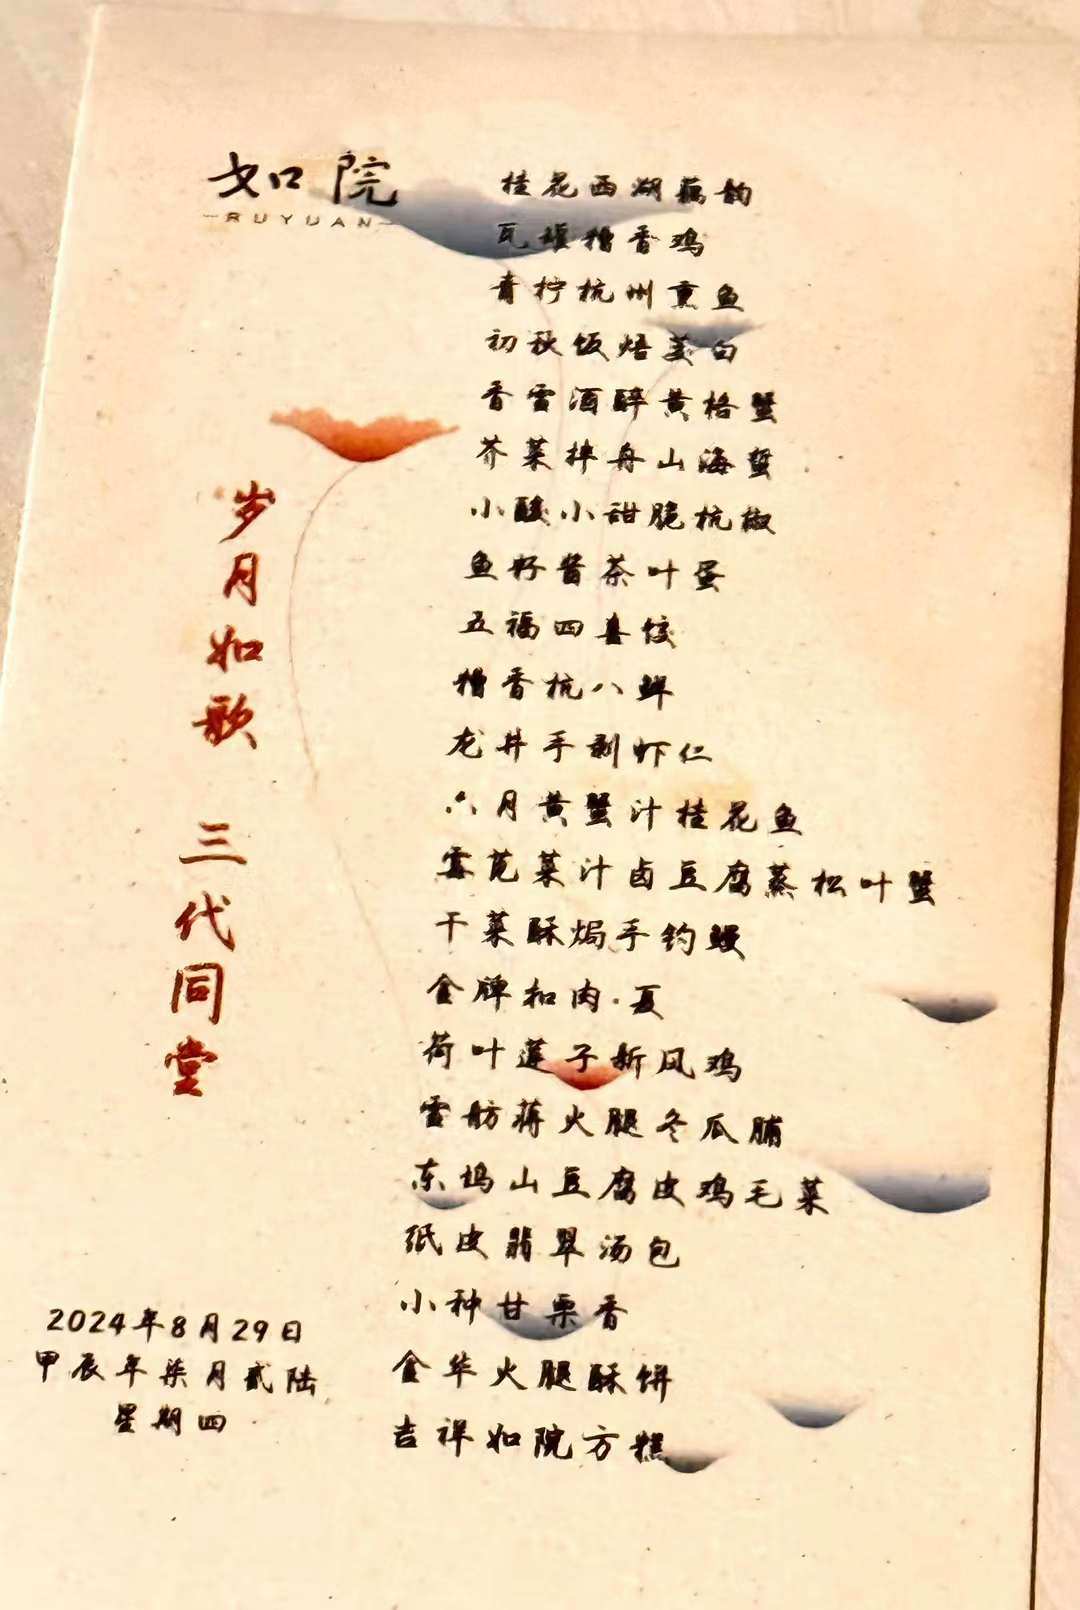 如院
RUYUAN
桂花西湖藕韵
瓦罐糟香鸡
青柠杭州熏鱼
初秋饭焐茭白
香雪酒醉黄格蟹
芥菜拌舟山海蜇
小酸小甜脆杭椒
鱼籽酱茶叶蛋
五福四喜饺
糟香杭八鲜
龙井手剥虾仁
六月黄蟹汁桂花鱼
霉苋菜汁卤豆腐蒸松叶蟹
干菜酥焗手钓鳗
金牌扣肉·夏
荷叶莲子新风鸡
雪舫蒋火腿冬瓜脯
东坞山豆腐皮鸡毛菜
纸皮翡翠汤包
小种甘栗香
金华火腿酥饼
吉祥如院方糕
岁月如歌 三代同堂
2024年8月29日
甲辰年柒月贰陆
星期四